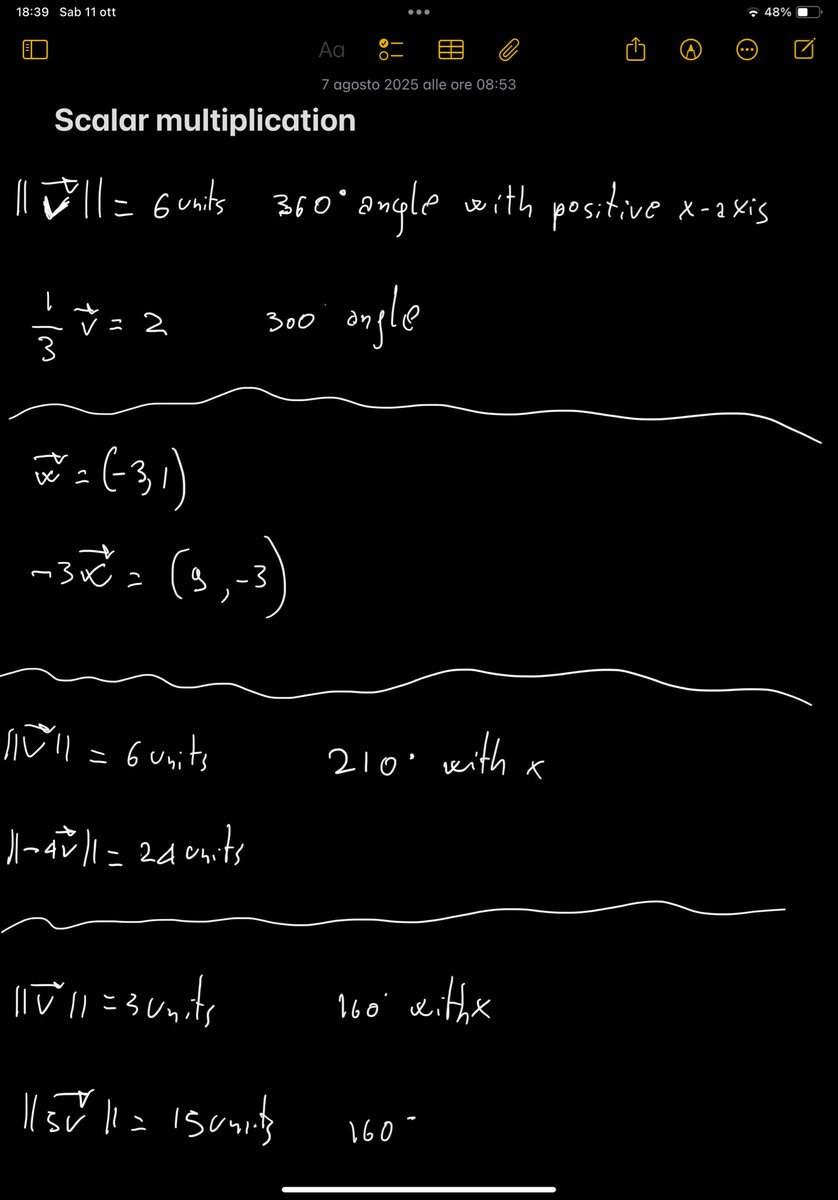 18:39 Sab 11 ott 48%
Aa
7 agosto 2025 alle ore 08:53
Scalar multiplication
||v⃗|| = 6 units 360° angle with positive x-axis
1/3 v⃗ = 2 300° angle
w⃗ = (-3,1)
-3w⃗ = (9,-3)
||v⃗|| = 6 units 210° with x
||-4v⃗|| = 24 units
||v⃗|| = 3 units 160° with x
||5v⃗|| = 15 units 160°